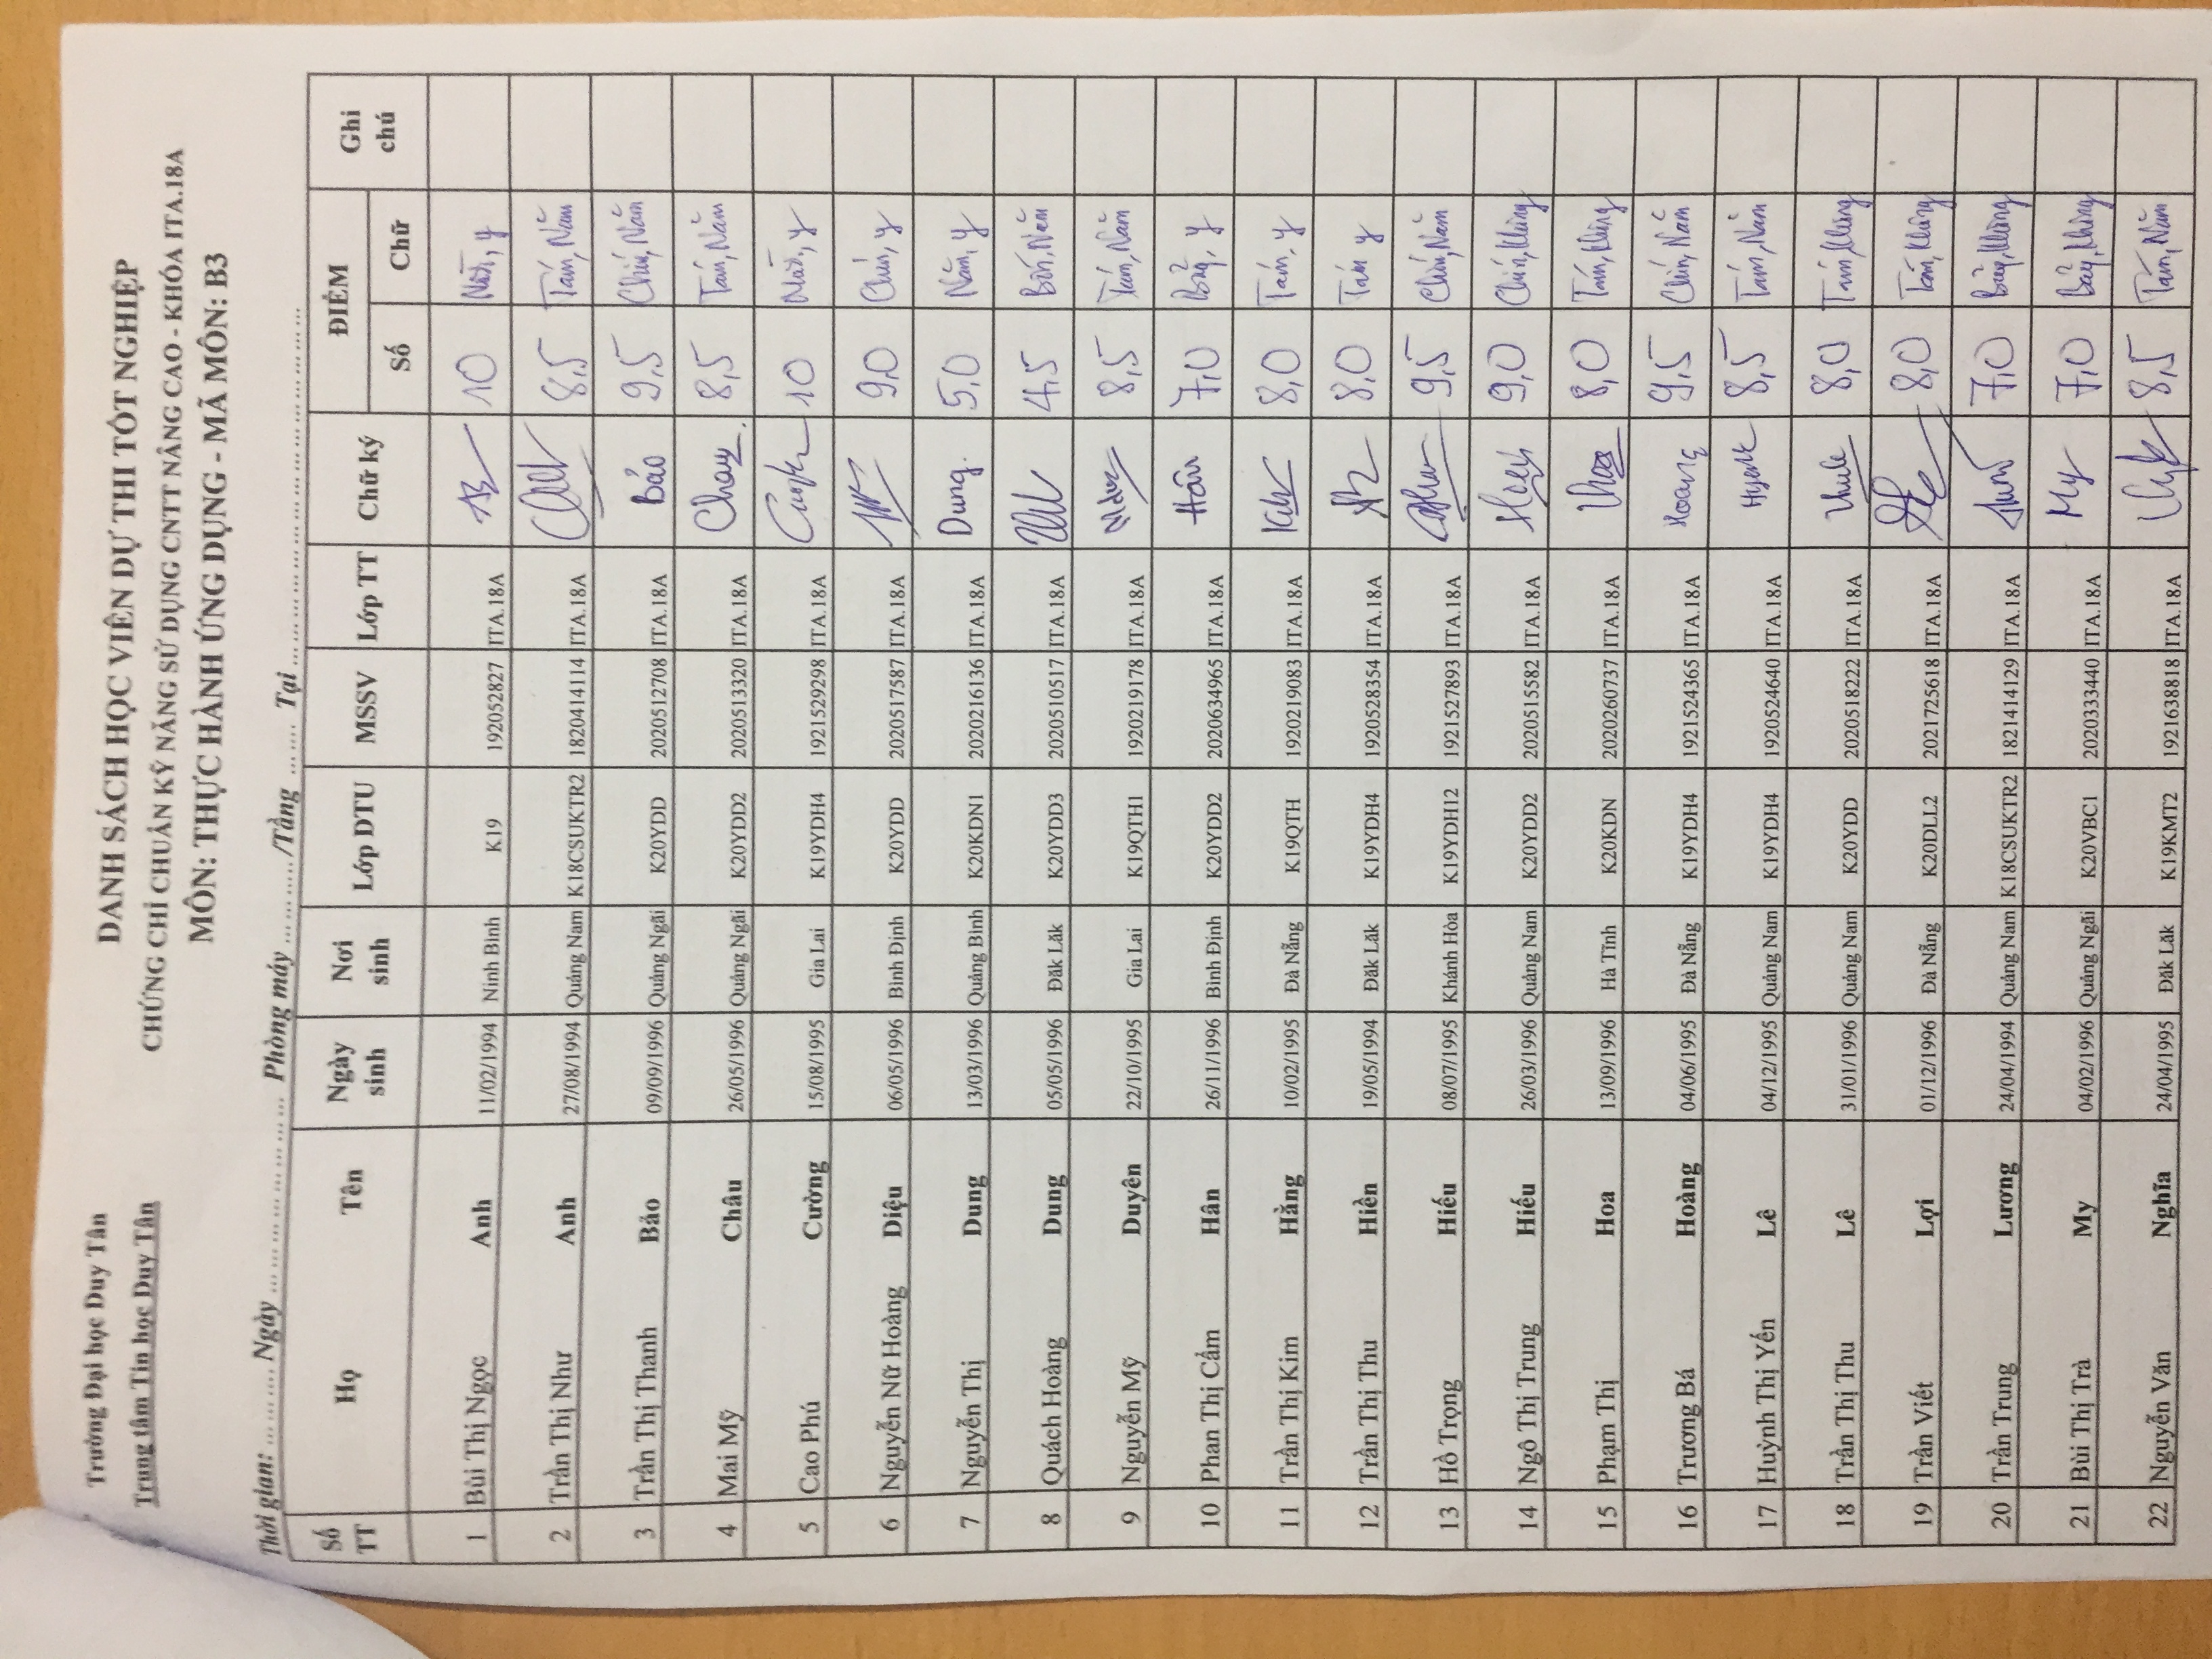 Trường Đại học Duy Tân
Trung tâm Tin học Duy Tân
DANH SÁCH HỌC VIÊN DỰ THI TỐT NGHIỆP
CHỨNG CHỈ CHUẨN KỸ NĂNG SỬ DỤNG CNTT NÂNG CAO - KHÓA ITA.18A
MÔN: THỰC HÀNH ỨNG DỤNG - MÃ MÔN: B3
Thời gian: ........... Ngày .................. Phòng máy ............/Tầng ....... Tại ..............................
Số TT Họ Tên Ngày sinh Nơi sinh Lớp DTU MSSV Lớp TT Chữ ký ĐIỂM Số Chữ Ghi chú
1 Bùi Thị Ngọc Anh 11/02/1994 Ninh Bình K19 192052827 ITA.18A 10
2 Trần Thị Như Anh 27/08/1994 Quảng Nam K18CSUKTR2 1820414114 ITA.18A 8,5 Tám, Năm
3 Trần Thị Thanh Bảo 09/09/1996 Quảng Ngãi K20YDD 2020512708 ITA.18A Bảo 9,5 Chín, Năm
4 Mai Mỹ Châu 26/05/1996 Quảng Ngãi K20YDD2 2020513320 ITA.18A Chau 8,5 Tám, Năm
5 Cao Phú Cường 15/08/1995 Gia Lai K19YDH4 1921529298 ITA.18A 10
6 Nguyễn Nữ Hoàng Diệu 06/05/1996 Bình Định K20YDD 2020517587 ITA.18A 9,0 Chín, y
7 Nguyễn Thị Dung 13/03/1996 Quảng Bình K20KDN1 2020216136 ITA.18A Dung 5,0 Năm, y
8 Quách Hoàng Dung 05/05/1996 Đăk Lăk K20YDD3 2020510517 ITA.18A 4,5 Bốn, Năm
9 Nguyễn Mỹ Duyên 22/10/1995 Gia Lai K19QTH1 1920219178 ITA.18A 8,5 Tám, Năm
10 Phan Thị Cẩm Hân 26/11/1996 Bình Định K20YDD2 2020634965 ITA.18A Hân 7,0 Bảy, y
11 Trần Thị Kim Hằng 10/02/1995 Đà Nẵng K19QTH 1920219083 ITA.18A 8,0 Tám, y
12 Trần Thị Thu Hiền 19/05/1994 Đăk Lăk K19YDH4 1920528354 ITA.18A 8,0 Tám y
13 Hồ Trọng Hiếu 08/07/1995 Khánh Hòa K19YDH12 1921527893 ITA.18A 9,5 Chín, Năm
14 Ngô Thị Trung Hiếu 26/03/1996 Quảng Nam K20YDD2 2020515582 ITA.18A 9,0 Chín, Không
15 Phạm Thị Hoa 13/09/1996 Hà Tĩnh K20KDN 2020260737 ITA.18A 8,0 Tám, Không
16 Trương Bá Hoàng 04/06/1995 Đà Nẵng K19YDH4 1921524365 ITA.18A Hoang 9,5 Chín, Năm
17 Huỳnh Thị Yến Lê 04/12/1995 Quảng Nam K19YDH4 1920524640 ITA.18A 8,5 Tám, Năm
18 Trần Thị Thu Lê 31/01/1996 Quảng Nam K20YDD 2020518222 ITA.18A 8,0 Tám, Không
19 Trần Viết Lợi 01/12/1996 Đà Nẵng K20DLL2 2021725618 ITA.18A 8,0 Tám, Không
20 Trần Trung Lương 24/04/1994 Quảng Nam K18CSUKTR2 1821414129 ITA.18A 7,0 Bảy, Không
21 Bùi Thị Trà My 04/02/1996 Quảng Ngãi K20VBC1 2020333440 ITA.18A My 7,0 Bảy, Không
22 Nguyễn Văn Nghĩa 24/04/1995 Đăk Lăk K19KMT2 1921638818 ITA.18A 8,5 Tám, Năm